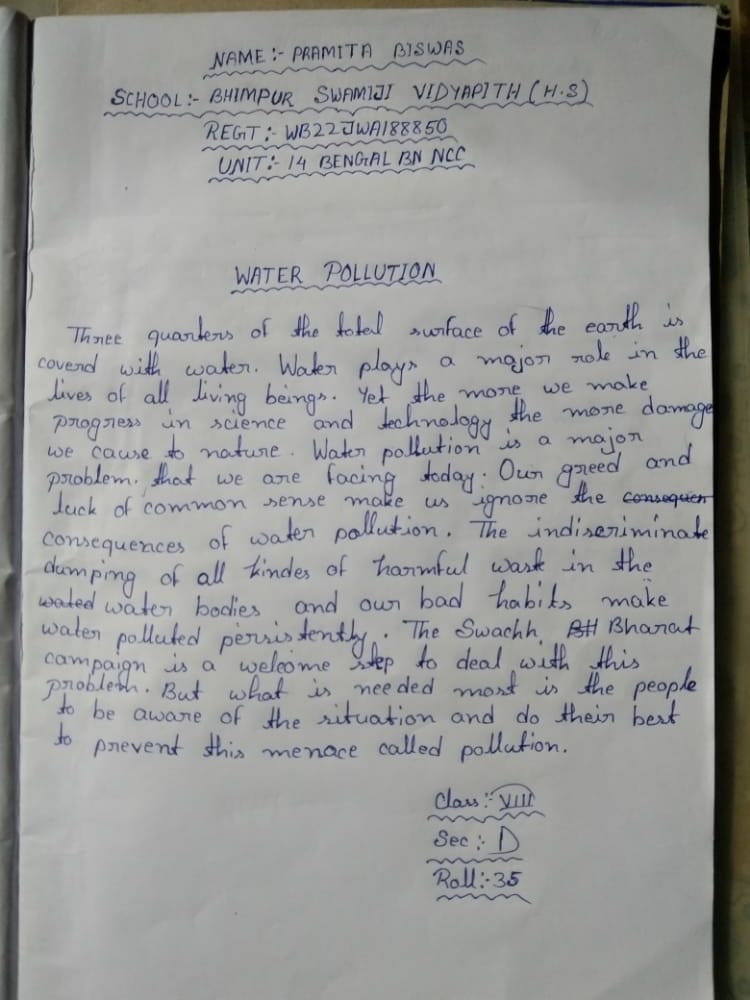 NAME:- PRAMITA BISWAS
SCHOOL:- BHIMPUR SWAMIJI VIDYAPITH (H.S)
REGT:- WB22JWA188850
UNIT:- 14 BENGAL BN NCC
WATER POLLUTION
Three quarters of the total surface of the earth is
coverd with water. Water plays a major role in the
lives of all living beings. Yet the more we make
progress in science and technology the more damage
we cause to nature. Water pollution is a major
problem. that we are facing today. Our greed and
luck of common sense make us ignore the consequen
consequences of water pollution. The indiscriminate
dumping of all kindes of harmful wask in the
wated water bodies and our bad habits make
water polluted persistently. The Swachh BH Bharat
campaign is a welcome step to deal with this
problem. But what is needed most is the people
to be aware of the situation and do their best
to prevent this menace called pollution.
Class:- VIII
Sec:- D
Roll:- 35